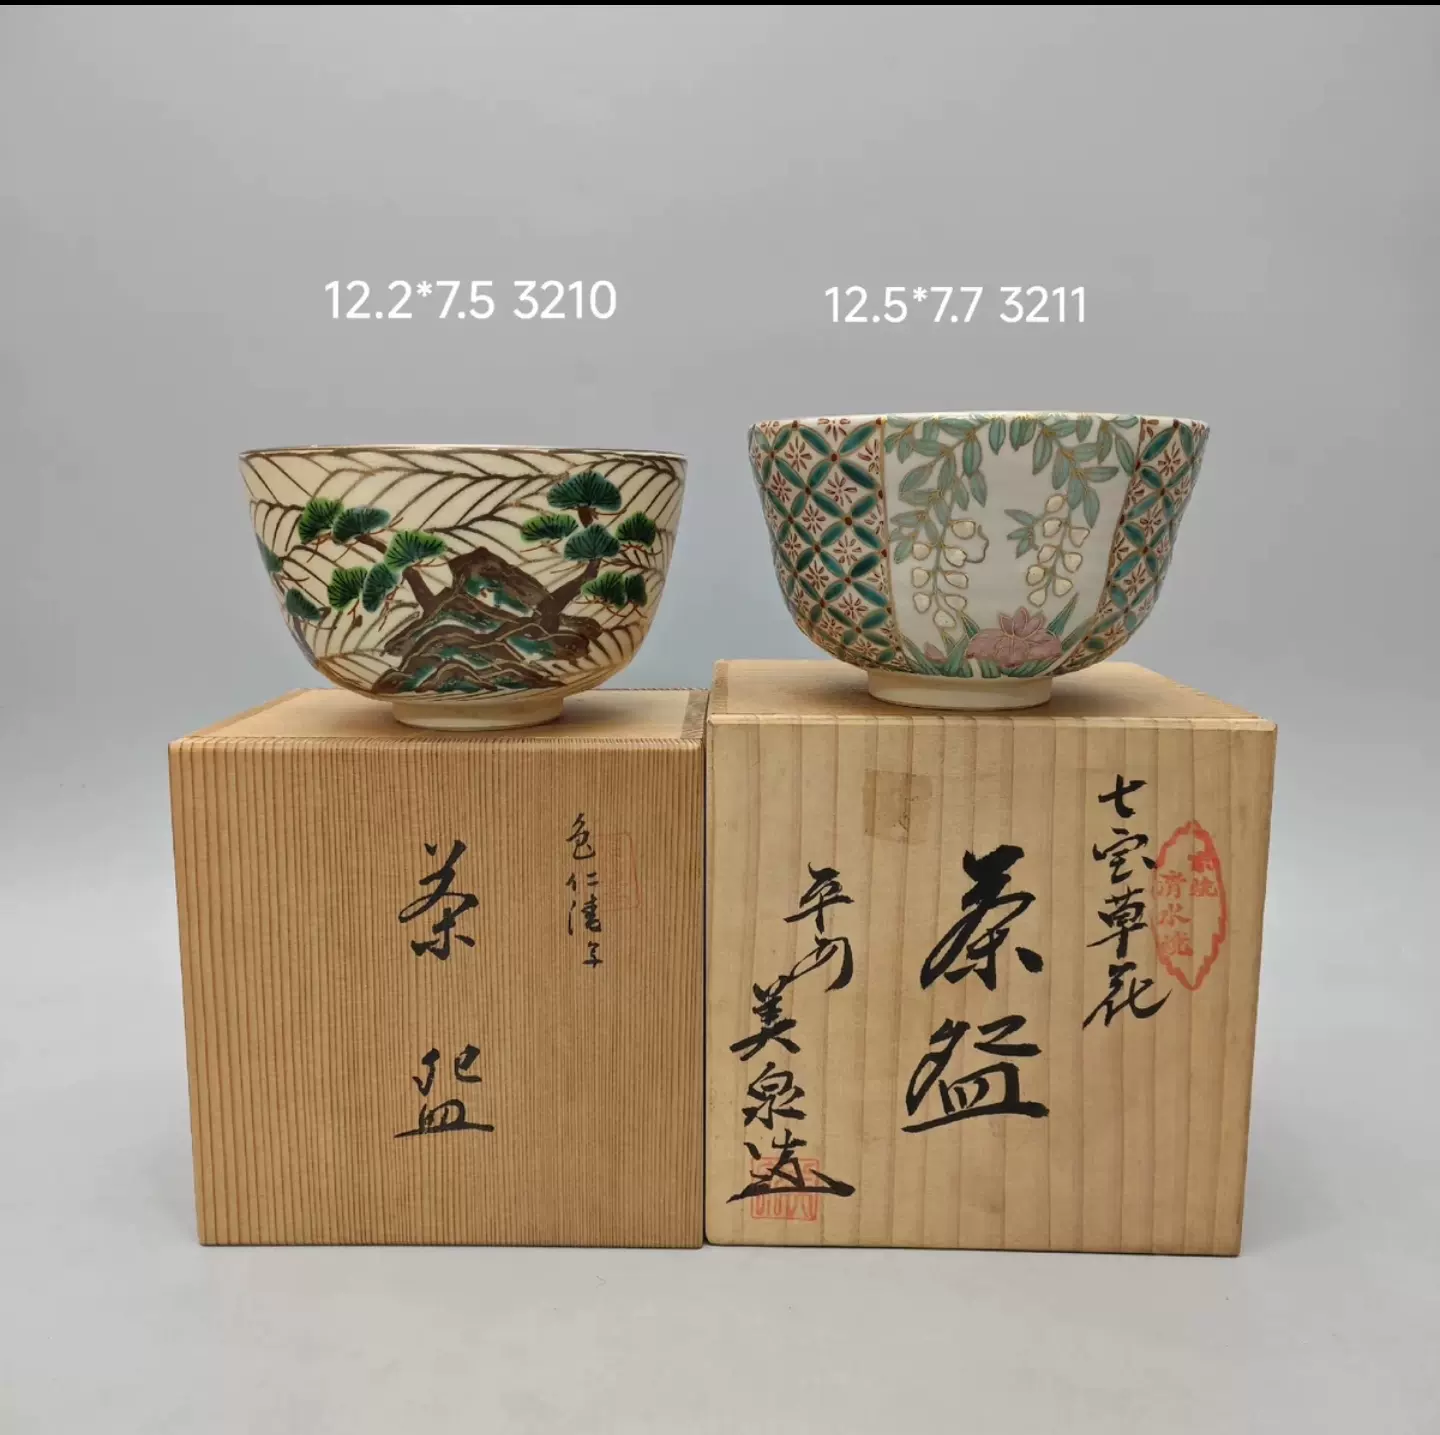 12.2*7.5 3210
12.5*7.7 3211
色仁清写
茶盌
七宝草花
茶盌
平安
美泉造
清水焼